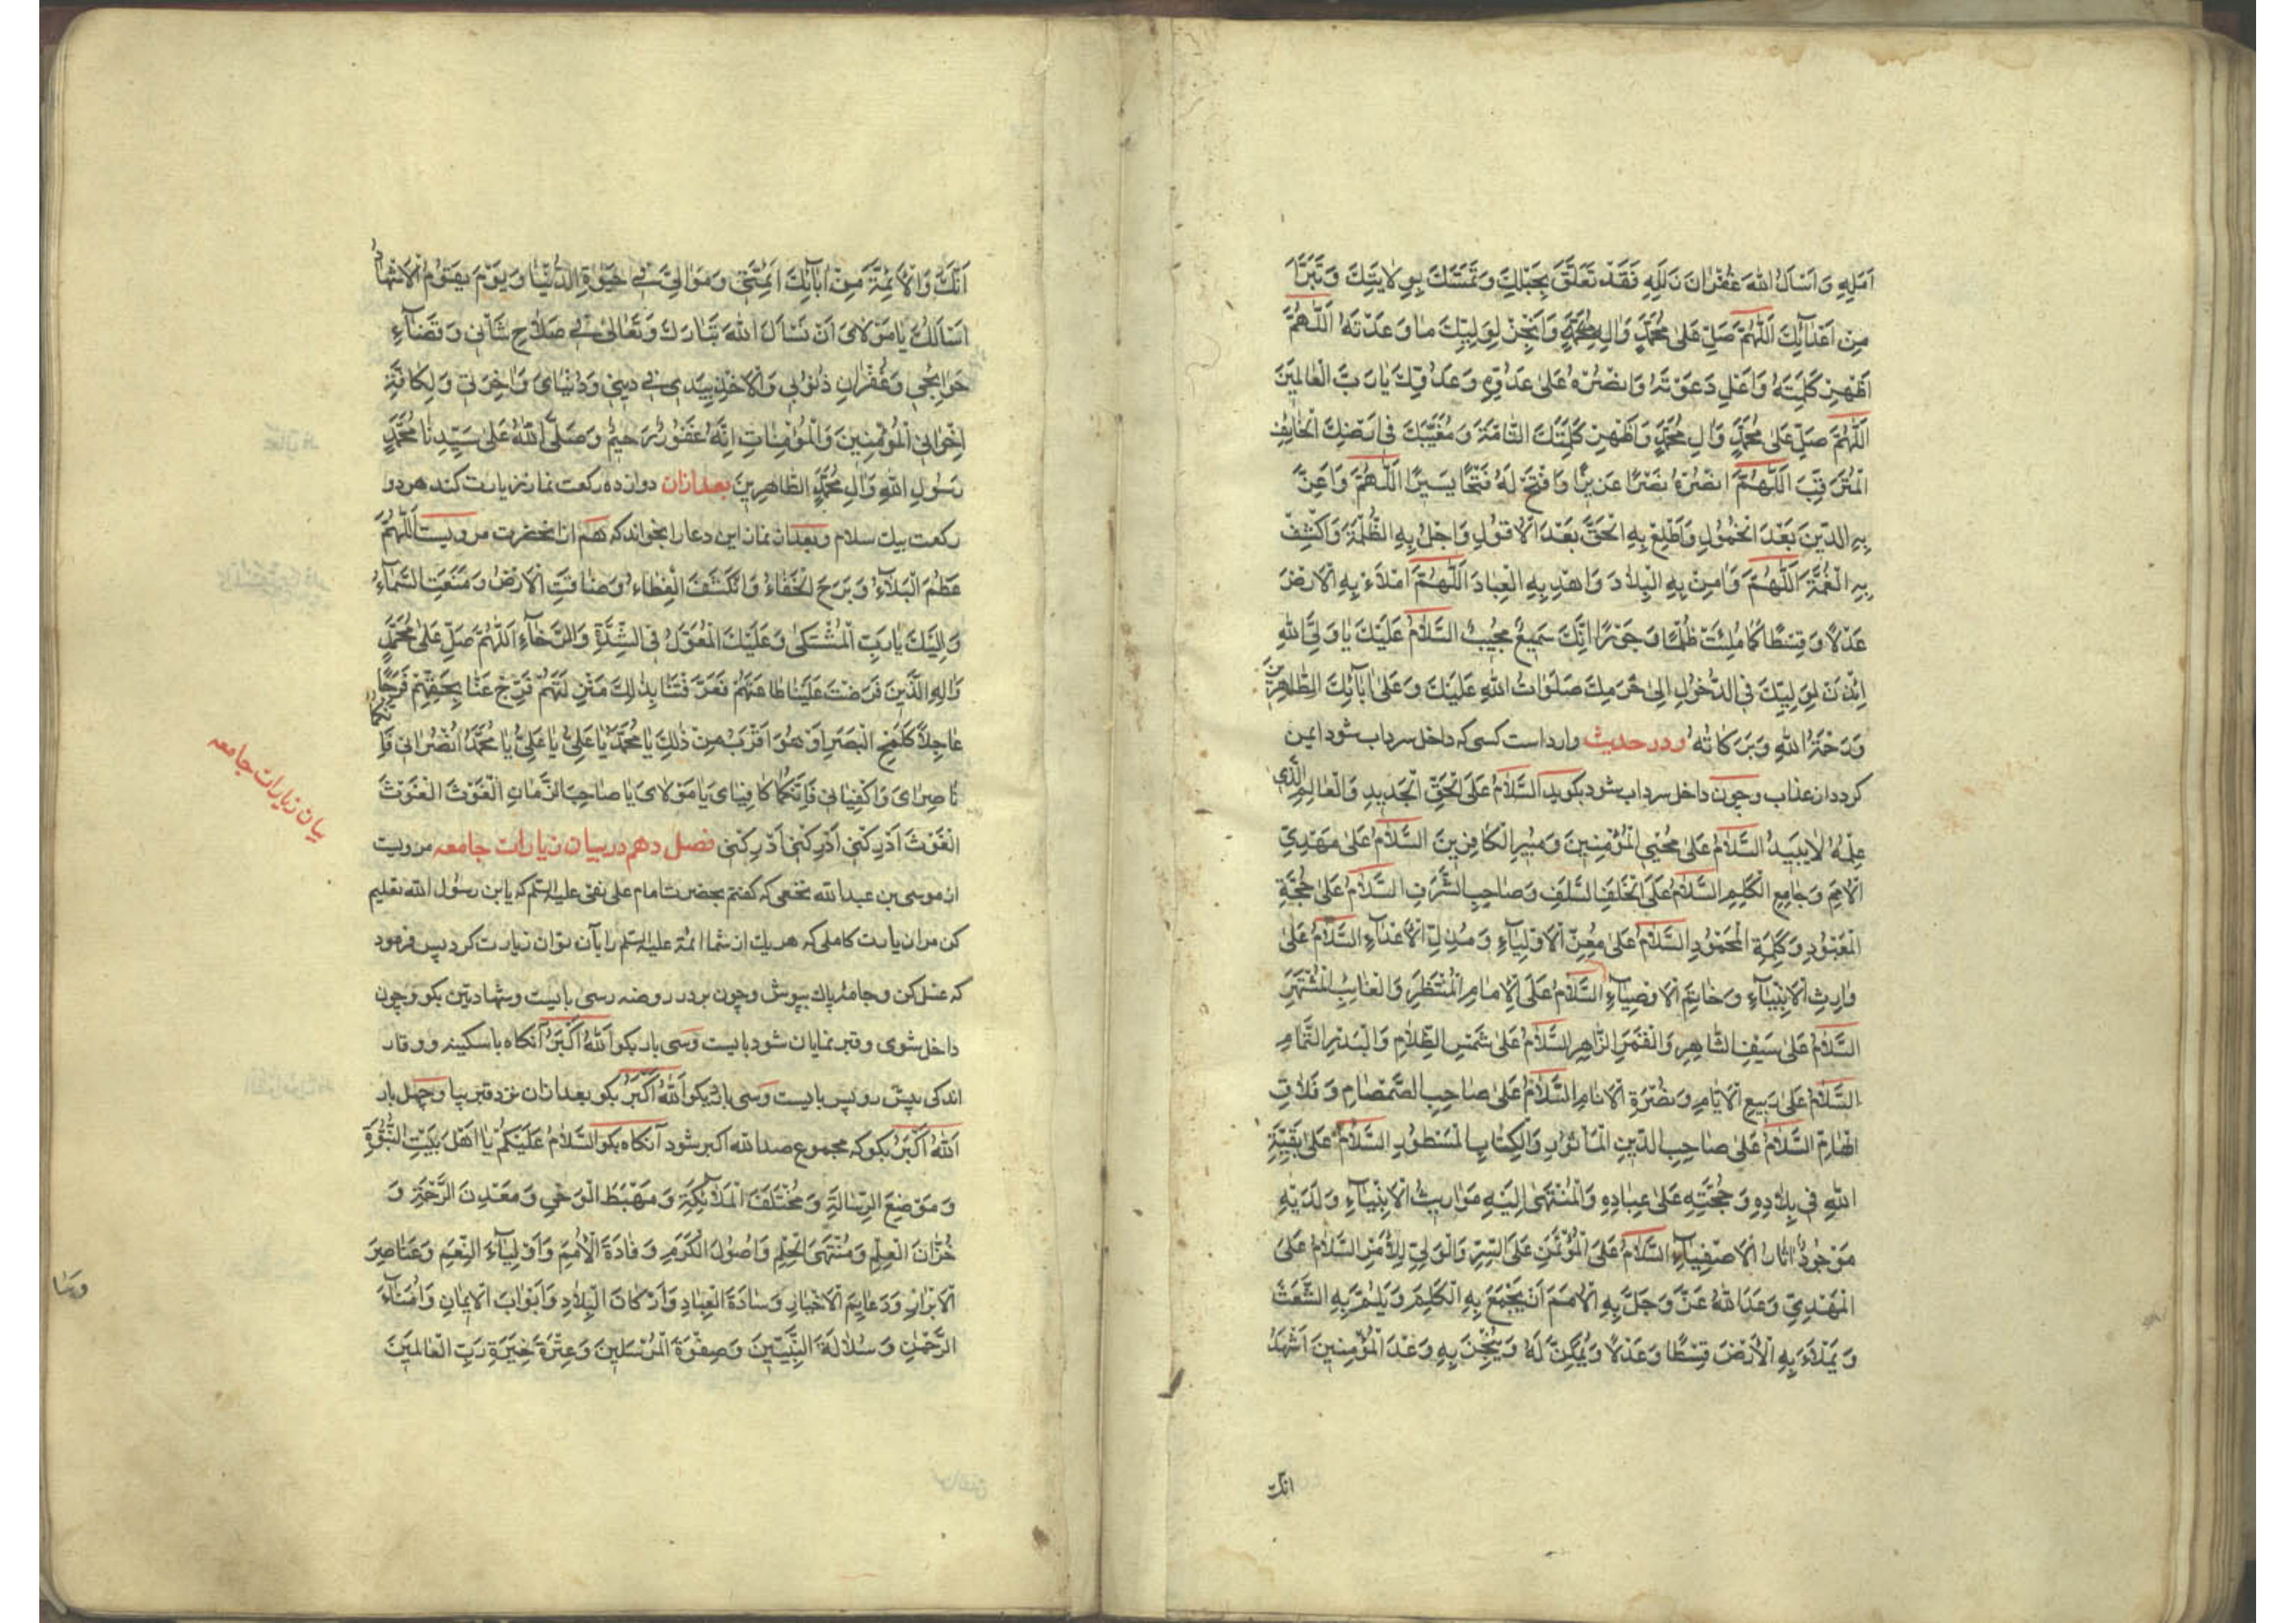 اَمَلِهِ وَ اَسْاَلُ اللهَ غُفْرانَ زَلَلِهِ فَقَدْ تَعَلَّقَ بِحَبْلِكَ وَ تَمَسَّكَ بِوِلايَتِكَ وَ تَبَرَّاَ
مِنْ اَعْدآئِكَ اَللّٰهُمَّ صَلِّ عَلىٰ مُحَمَّدٍ وَالِهِ وَاَنْجِزْ لِوَلِيِّكَ ما وَعَدْتَهُ اَللّٰهُمَّ
اَظْهِرْ كَلِمَتَهُ وَاَعْلِ دَعْوَتَهُ وَانْصُرْهُ عَلىٰ عَدُوِّهِ وَعَدُوِّكَ يارَبَّ الْعالَمينَ
اَللّٰهُمَّ صَلِّ عَلىٰ مُحَمَّدٍ وَالِ مُحَمَّدٍ وَاَظْهِرْ كَلِمَتَكَ التّامَّةَ وَمُغَيَّبَكَ في اَرْضِكَ الْخآئِفَ
الْمُتَرَقِّبَ اَللّٰهُمَّ انْصُرْهُ نَصْرًا عَزيزًا وَافْتَحْ لَهُ فَتْحًا يَسيرًا اَللّٰهُمَّ وَاَعِزَّ
بِهِ الدّينَ بَعْدَ الْخُمُولِ وَاَطْلِعْ بِهِ الْحَقَّ بَعْدَ الْاُفُولِ وَاَجْلِ بِهِ الظُّلْمَةَ وَاكْشِفْ
بِهِ الْغُمَّةَ اَللّٰهُمَّ وَامِنْ بِهِ الْبِلادَ وَاهْدِ بِهِ الْعِبادَ اَللّٰهُمَّ امْلَاءْ بِهِ الْاَرْضَ
عَدْلًا وَقِسْطًا كَما مُلِئَتْ ظُلْمًا وَجَوْرًا اِنَّكَ سَميعٌ مُجيبٌ السَّلامُ عَلَيْكَ ياوَلِيَّ اللهِ
اِئْذَنْ لِوَلِيِّكَ فِي الدُّخُولِ اِلىٰ حَرَمِكَ صَلَواتُ اللهِ عَلَيْكَ وَعَلىٰ ابآئِكَ الطّاهِرينَ
وَرَحْمَةُ اللهِ وَبَرَكاتُهُ ودر حديث وارداست كسى كه داخل سرداب شود ايمن
كردد از عذاب و چون داخل سرداب شود بكويد السَّلامُ عَلَى الْحَقِّ الْجَديدِ وَالْعالِمِ الَّذي
عِلْمُهُ لايَبيدُ السَّلامُ عَلىٰ مُحْيِي الْمُؤْمِنينَ وَمُبيرِ الْكافِرينَ السَّلامُ عَلىٰ مَهْدِيِّ
الْاُمَمِ وَجامِعِ الْكَلِمِ السَّلامُ عَلَى الْخَلَفِ السَّلَفِ وَصاحِبِ الشَّرَفِ السَّلامُ عَلىٰ حُجَّةِ
الْمَعْبُودِ وَكَلِمَةِ الْمَحْمُودِ السَّلامُ عَلىٰ مُعِزِّ الْاَوْلِيآءِ وَمُذِلِّ الْاَعْدآءِ السَّلامُ عَلىٰ
وارِثِ الْاَنْبِيآءِ وَخاتِمِ الْاَوْصِيآءِ السَّلامُ عَلَى الْاِمامِ الْمُنْتَظَرِ وَالْغائِبِ الْمُشْتَهَرِ
السَّلامُ عَلىٰ سَيْفِ الشّاهِرِ وَالْقَمَرِ الزّاهِرِ السَّلامُ عَلىٰ شَمْسِ الظَّلامِ وَالْبَدْرِ التَّمامِ
السَّلامُ عَلىٰ رَبيعِ الْاَيّامِ وَنَضْرَةِ الْاَنامِ السَّلامُ عَلىٰ صاحِبِ الصَّمْصامِ وَفَلّاقِ
الْهامِ السَّلامُ عَلىٰ صاحِبِ الدّينِ الْمَأثُورِ وَالْكِتابِ الْمَسْطُورِ السَّلامُ عَلىٰ بَقِيَّةِ
اللهِ في بِلادِهِ وَحُجَّتِهِ عَلىٰ عِبادِهِ وَالْمُنْتَهىٰ اِلَيْهِ مَواريثُ الْاَنْبِيآءِ وَلَدَيْهِ
مَوْجُودٌ اثارُ الْاَصْفِيآءِ السَّلامُ عَلَى الْمُؤْتَمَنِ عَلَى السِّرِّ وَالْوَلِيِّ لِلْاَمْرِ السَّلامُ عَلَى
الْمَهْدِيِّ وَعَدَ اللهُ عَزَّ وَجَلَّ بِهِ الْاُمَمَ اَنْ يَجْمَعَ بِهِ الْكَلِمَ وَيَلُمَّ بِهِ الشَّعَثَ
وَيَمْلَاءَ بِهِ الْاَرْضَ قِسْطًا وَعَدْلًا وَيُمَكِّنَ لَهُ وَيُنْجِزَ بِهِ وَعْدَ الْمُؤْمِنينَ اَشْهَدُ
انّك
اَنَّكَ وَالْاَئِمَّةَ مِنْ ابآئِكَ اَئِمَّتي وَمَوالِيَّ في حَيٰوةِ الدُّنْيا وَيَوْمَ يَقُومُ الْاَشْهادُ
اَسْاَلُكَ يا مَوْلايَ اَنْ تَسْاَلَ اللهَ تَبارَكَ وَتَعالىٰ في صَلاحِ شَأني وَقَضآءِ
حَوآئِجي وَغُفْرانِ ذُنُوبي وَالْاَخْذِ بِيَدي في ديني وَدُنْيايَ وَاخِرَتي وَلِكافَّةِ
اِخْوانِيَ الْمُؤْمِنينَ وَالْمُؤْمِناتِ اِنَّهُ غَفُورٌ رَحيمٌ وَصَلَّى اللهُ عَلىٰ سَيِّدِنا مُحَمَّدٍ
رَسُولِ اللهِ وَالِ مُحَمَّدٍ الطّاهِرينَ بعد ازان دوازده ركعت نماز زيارت كند هر دو
ركعت بيك سلام و بعد از نماز اين دعا را بخواند كه هم از انحضرت مرويست اَللّٰهُمَّ
عَظُمَ الْبَلآءُ وَبَرَحَ الْخَفاءُ وَانْكَشَفَ الْغِطاءُ وَضاقَتِ الْاَرْضُ وَمُنِعَتِ السَّمآءُ
وَاِلَيْكَ يارَبِّ الْمُشْتَكىٰ وَعَلَيْكَ الْمُعَوَّلُ فِي الشِّدَّةِ وَالرَّخآءِ اَللّٰهُمَّ صَلِّ عَلىٰ مُحَمَّدٍ
وَالِهِ الَّذينَ فَرَضْتَ عَلَيْنا طاعَتَهُمْ فَعَرَّفْتَنا بِذٰلِكَ مَنْزِلَتَهُمْ فَرِّجْ عَنّا بِحَقِّهِمْ فَرَجًا
عاجِلًا كَلَمْحِ الْبَصَرِ اَوْ هُوَ اَقْرَبُ مِنْ ذٰلِكَ يا مُحَمَّدُ يا عَلِيُّ يا عَلِيُّ يا مُحَمَّدُ انْصُراني فَاِنَّكُما
ناصِرايَ وَاكْفِياني فَاِنَّكُما كافِيايَ يا مَوْلايَ يا صاحِبَ الزَّمانِ الْغَوْثَ الْغَوْثَ
الْغَوْثَ اَدْرِكْني اَدْرِكْني اَدْرِكْني فصل دهم در بيان زيارات جامعه مرويست
از موسى بن عبدالله نخعى كه كفتم بحضرت امام على نقى عليه السّلم كه يابن رسول الله تعليم
كن مرا زيارت كاملى كه هر يك از شما ائمه عليه السّلم را بآن توان زيارت كرد پس فرمود
كه غسل كن و جامهٔ پاك بپوش و چون بردر روضه رسى بايست و شهادتين بكو و چون
داخل شوى و قبر نمايان شود بايست و سى بار بكو اَللهُ اَكْبَرُ آنكاه با سكينه و وقار
اندكى پيش رو پس بايست و سى بار بكو اَللهُ اَكْبَرُ بكو بعد ازان نزد قبر بيا و چهل بار
اَللهُ اَكْبَرُ بكو كه مجموع صد الله اكبر شود آنكاه بكو السَّلامُ عَلَيْكُمْ يا اَهْلَ بَيْتِ النُّبُوَّةِ
وَمَوْضِعَ الرِّسالَةِ وَمُخْتَلَفَ الْمَلآئِكَةِ وَمَهْبَطَ الْوَحْيِ وَمَعْدِنَ الرَّحْمَةِ وَ
خُزّانَ الْعِلْمِ وَمُنْتَهَى الْحِلْمِ وَاُصُولَ الْكَرَمِ وَقادَةَ الْاُمَمِ وَاَوْلِيآءَ النِّعَمِ وَعَناصِرَ
الْاَبْرارِ وَدَعايِمَ الْاَخْيارِ وَساسَةَ الْعِبادِ وَاَرْكانَ الْبِلادِ وَاَبْوابَ الْايمانِ وَاُمَنآءَ
الرَّحْمٰنِ وَسُلالَةَ النَّبِيّينَ وَصِفْوَةَ الْمُرْسَلينَ وَعِتْرَةَ خِيَرَةِ رَبِّ الْعالَمينَ
بيان زيارات جامعه